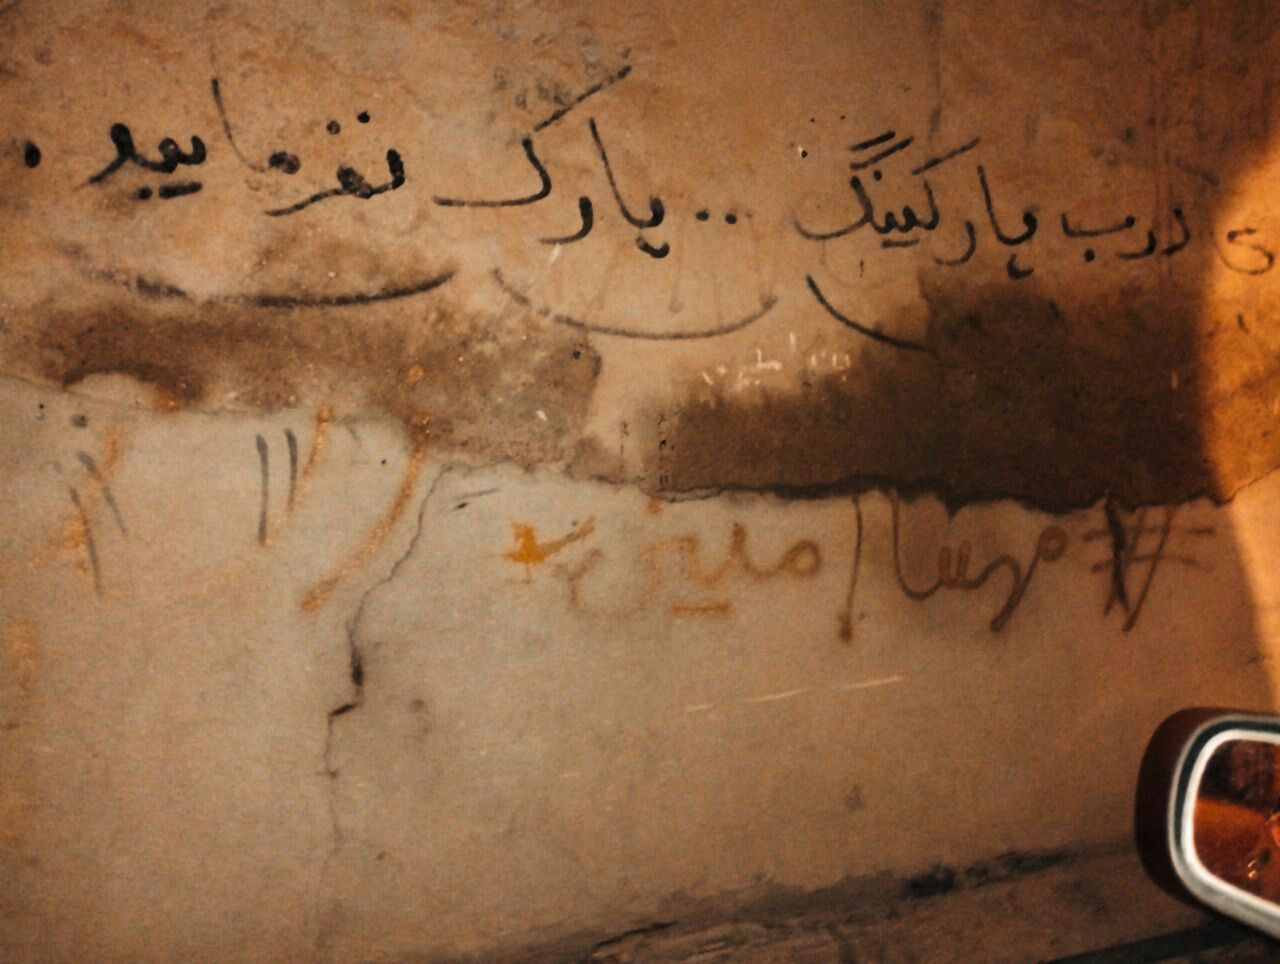 درب پارکینگ .. پارک نفرمایید .
#مهسا_امینی